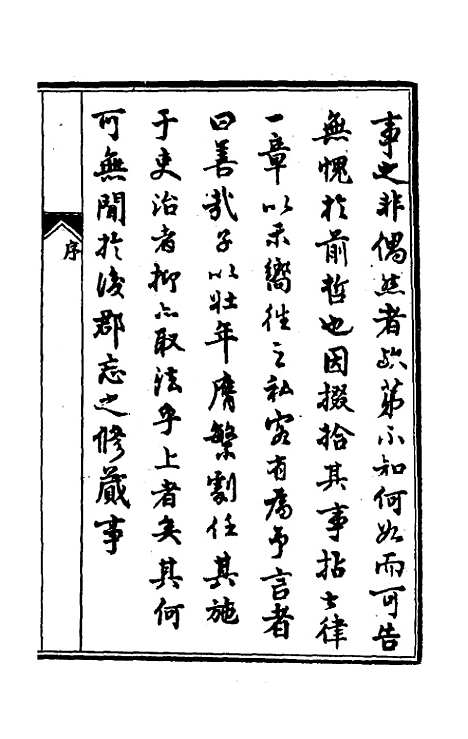 事也非偶然者歟第不知何如而可告
無愧於前哲也因掇拾其事拈七律
一章以示嚮往之私客有為予言者
曰善哉子以壯年膺繁劇任其施
于吏治者抑亦取法乎上者矣其何
可無聞於後郡志之修蕆事
序